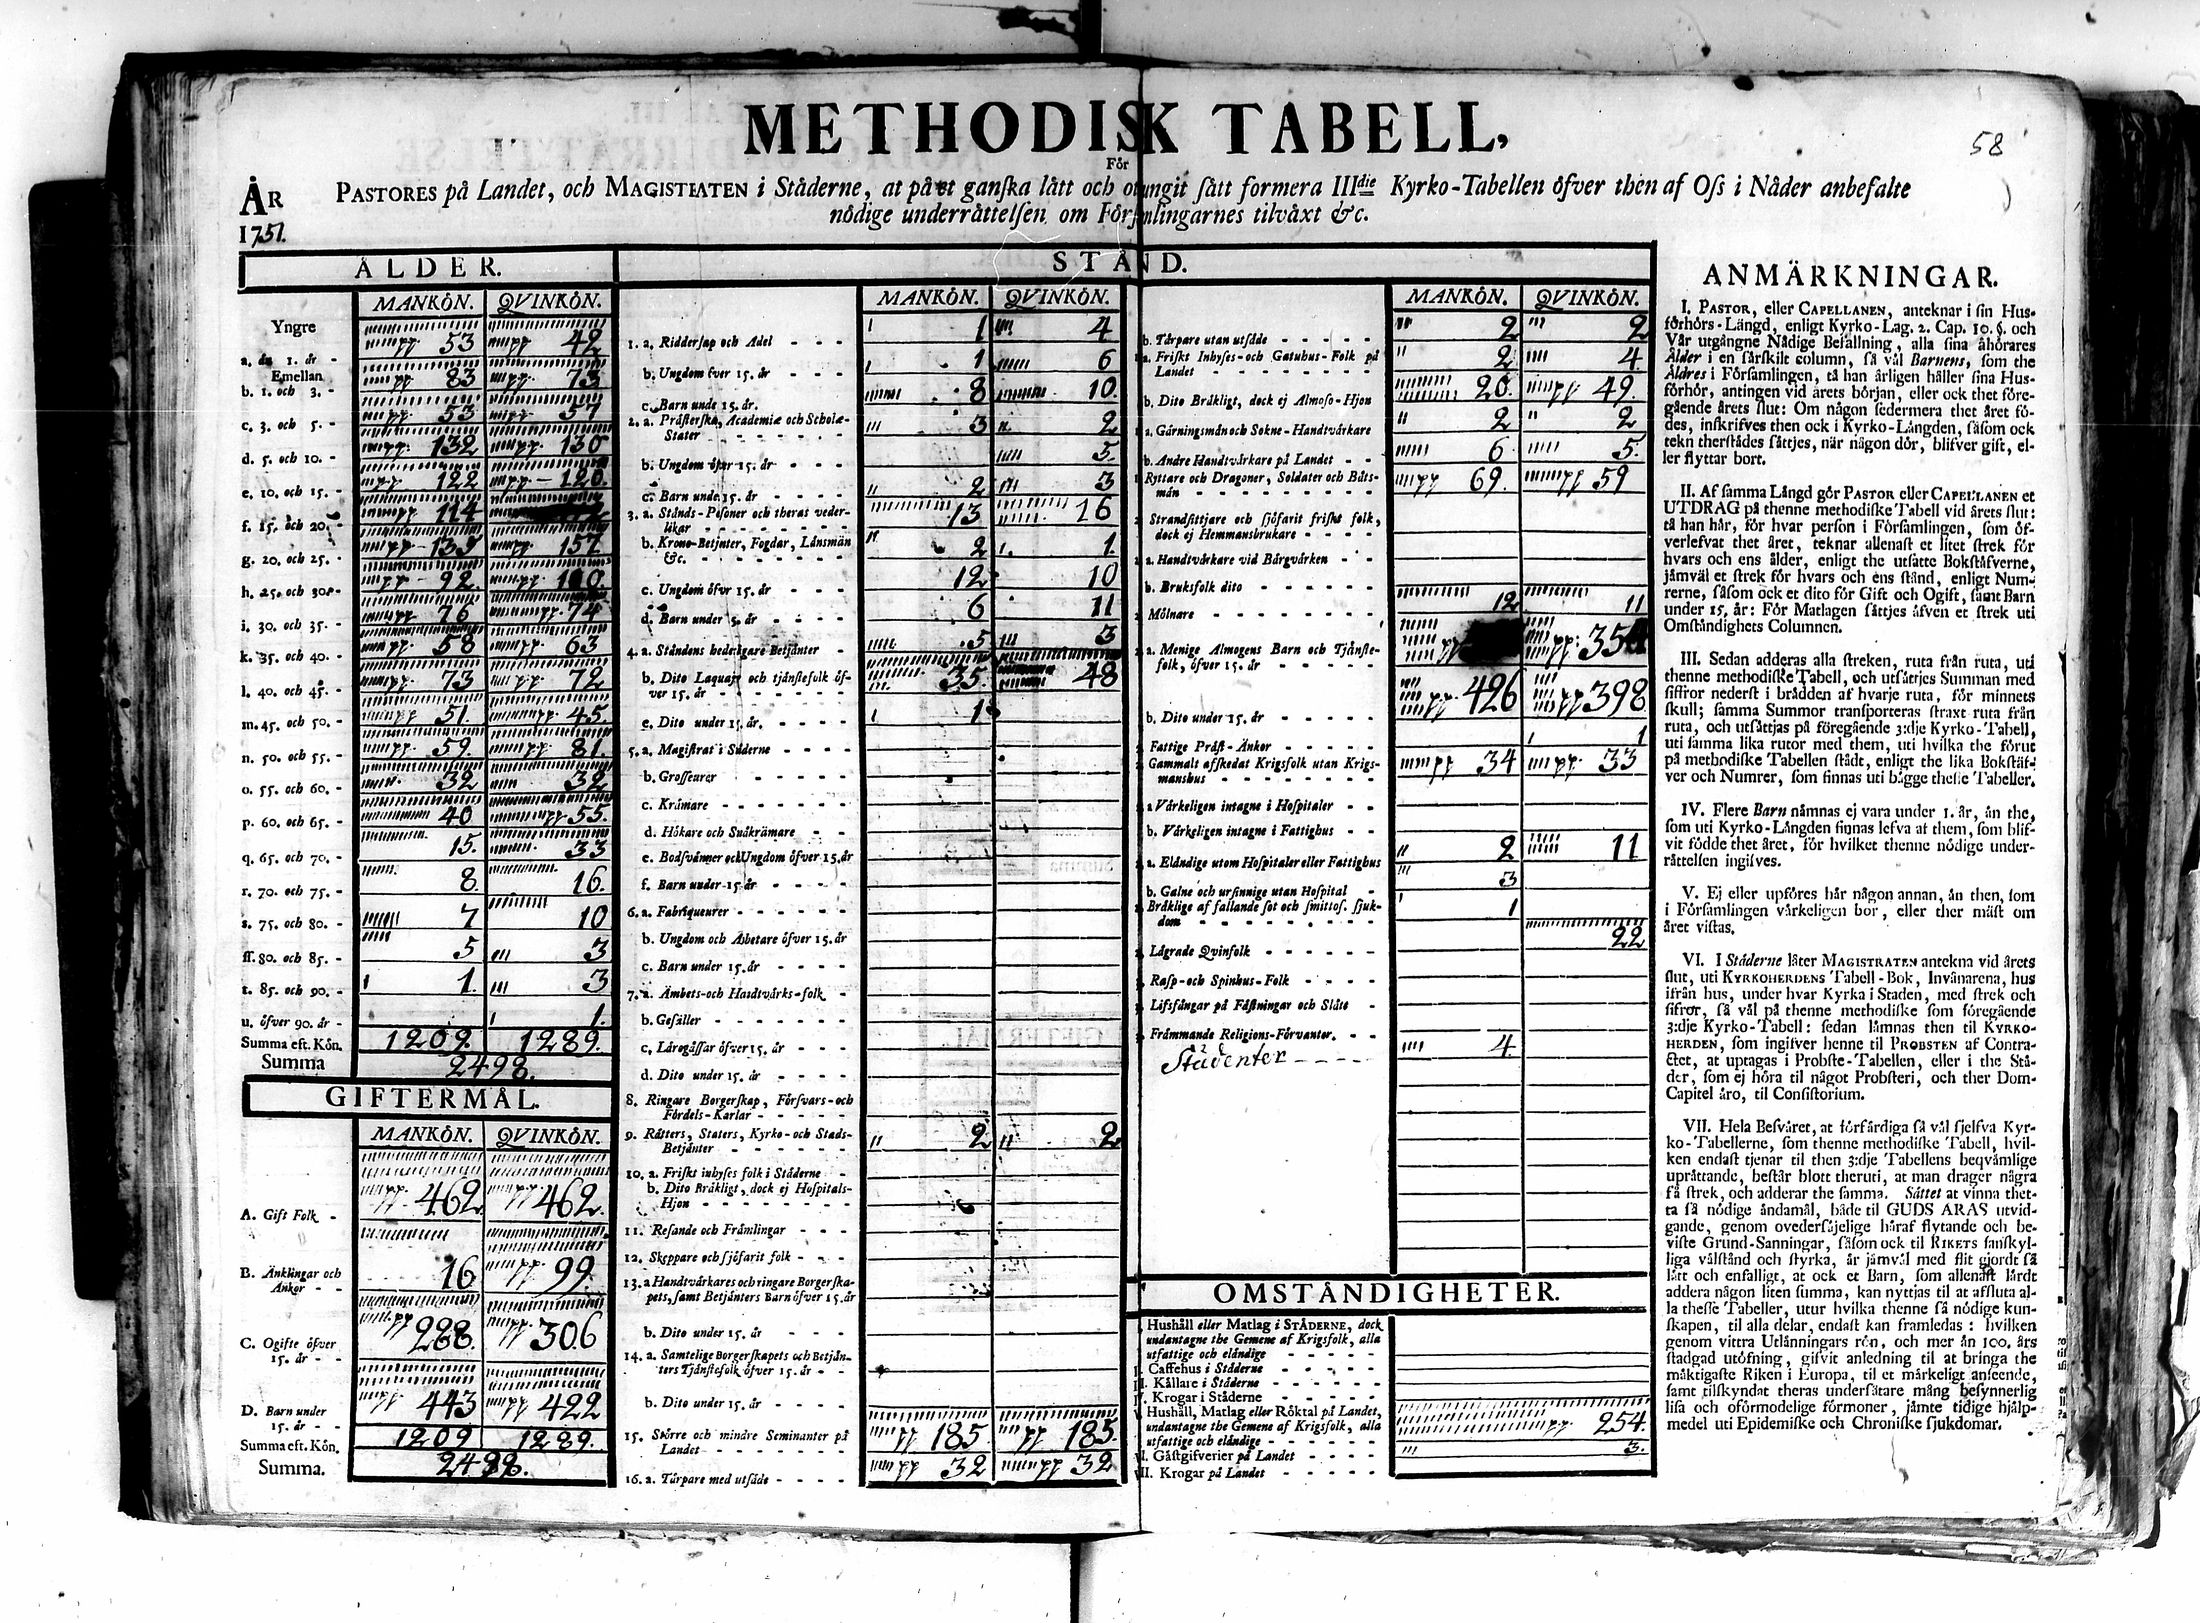 METHODISK TABELL,
58
För
PASTORES på Landet, och MAGISTRATEN i Städerne, at på et ganska lått och otvungit sått formera IIIdie Kyrko-Tabellen öfver then af Oss i Nåder anbefalte
nödige underråttelsen om Församlingarnes tilväxt &c.
ÅR
1751.
ÅLDER.
MANKÖN. QVINKÖN.
Yngre
a. än 1. år - 53 42
Emellan
b. 1. och 3. - 83 73
c. 3. och 5. - 53 57
d. 5. och 10. - 132 130
e. 10. och 15. - 122 120.
f. 15. och 20. - 114
g. 20. och 25. - 157
h. 25. och 30. - 92.
i. 30. och 35. - 76 74
k. 35. och 40. - 58 63
l. 40. och 45. - 73 72
m. 45. och 50. - 51. 45.
n. 50. och 55. - 59. 81.
o. 55. och 60. - 32 32
p. 60. och 65. - 40 55.
q. 65. och 70. - 15. 33
r. 70. och 75. - 8. 16.
s. 75. och 80. - 7 10
ff. 80. och 85. - 5 3
t. 85. och 90. - 1. 3
u. öfver 90. år - 1.
Summa eft. Kön. 1209. 1289.
Summa 2498.
GIFTERMÅL.
MANKÖN. QVINKÖN.
A. Gift Folk - 462 462.
B. Änklingar och
Änkor - - 16 99.
C. Ogifte öfver
15. år - - 288. 306
D. Barn under
15. år - - 443 422
Summa eft. Kön. 1209 1289.
Summa. 2498.
STÅND.
MANKÖN. QVINKÖN.
1. a. Ridderskap och Adel - - - 1 4
b. Ungdom öfver 15. år - - - 1 6
c. Barn under 15. år. 8 10.
2. a. Prästerska, Academiæ och Scholæ-
Stater - - - - - - 3 2
b. Ungdom öfver 15. år - - - 5.
c. Barn under 15. år - - - 2 3
3. a. Stånds-Personer och theras veder-
likar - - - - - - 13. 16
b. Krono-Betjänter, Fogdar, Länsmän
&c. - - - - - - 2 1.
c. Ungdom öfver 15. år - - - 12 10
d. Barn under 15. år - - - 6 11
4. a. Ståndens hederligare Betjänter - 5 3
b. Dito Laquajer och tjänstefolk öf-
ver 15. år - - - - - 35. 48
c. Dito under 15. år. - - - 1
5. a. Magistrat i Städerne - - -
b. Grosseurer - - - -
c. Krämare - - - - -
d. Hökare och Småkrämare - -
e. Bodsvänner och Ungdom öfver 15. år
f. Barn under 15 år - - - -
6. a. Fabriqueurer - - - - -
b. Ungdom och Arbetare öfver 15. år
c. Barn under 15. år - - - -
7. a. Ämbets-och Handtvårks-folk -
b. Gesäller - - - - -
c. Lärogåssar öfver 15. år - - -
d. Dito under 15. år - - - -
8. Ringare Borgerskap, Försvars-och
Fördels-Karlar - - - - -
9. Råtters, Staters, Kyrko-och Stads-
Betjänter - - - - - - 2 2
10. a. Friskt inhyses folk i Städerne -
b. Dito Bräkligt, dock ej Hospitals-
Hjon - - - - - -
11. Resande och Främlingar - - -
12. Skeppare och sjöfarit folk - - -
13. a Handtvårkares och ringare Borgerska-
pets, samt Betjänters Barn öfver 15. år
b. Dito under 15. år - - -
14. a. Samtelige Borgerskapets och Betjän-
ters Tjänstefolk öfver 15. år - - -
b. Dito under 15. år - - - -
15. Större och mindre Seminanter på
Landet - - - - - - 185. 185.
16. a. Tårpare med utsäde - - - - 32 32
MANKÖN. QVINKÖN.
b. Tårpare utan utsäde - - - - 2 2
a. Friskt Inhyses-och Gatuhus-Folk på
Landet - - - - - - - 2 4
b. Dito Bräkligt, dock ej Almoso-Hjon 20. 49.
a. Gärningsmän och Sokne-Handtvårkare 2 2
b. Andre Handtvårkare på Landet - - 6 5.
Ryttare och Dragoner, Soldater och Båts-
män - - - - - - - - 69. 59
Strandsittjare och sjöfarit friskt folk,
dock ej Hemmansbrukare - - - -
a. Handtvårkare vid Bärgvärken - -
b. Bruksfolk dito - - - - -
Mölnare - - - - - - - 12 11
a. Menige Almogens Barn och Tjänste-
folk, öfver 15. år - - - - -
b. Dito under 15. år - - - - 426 398
Fattige Präst-Änkor - - - - - 1
Gammalt afskedat Krigsfolk utan Krigs-
manshus - - - - - - 34 33
a Vårkeligen intagne i Hospitaler - -
b. Vårkeligen intagne i Fattighus - -
a. Eländige utom Hospitaler eller Fattighus 2 11
b. Galne och ursinnige utan Hospital - 3
Bräklige af fallande sot och smittos. sjuk-
dom - - - - - - - 1
Lägrade Qvinfolk - - - - - 22
Rasp-och Spinhus-Folk - - - -
Lifsfångar på Fästningar och Slått -
Främmande Religions-Förvanter. - -
Studenter - - - - 4.
OMSTÄNDIGHETER.
Hushåll eller Matlag i STÄDERNE, dock
undantagne the Gemene af Krigsfolk, alla
utfattige och eländige - - - - -
Caffehus i Städerne - - - - -
Källare i Städerne - - - - -
Krogar i Städerne - - - - -
Hushåll, Matlag eller Röktal på Landet,
undantagne the Gemene af Krigsfolk, alla
utfattige och eländige - - - - - 254.
Gästgifverier på Landet - - - - 3.
Krogar på Landet - - - - -
ANMÄRKNINGAR.
I. PASTOR, eller CAPELLANEN, anteknar i sin Hus-
förhörs-Längd, enligt Kyrko-Lag. 2. Cap. 10. §. och
Vår utgångne Nådige Befallning, alla sina åhörares
Ålder i en särskilt column, så väl Barnens, som the
Äldres i Församlingen, tå han årligen håller sina Hus-
förhör, antingen vid årets början, eller ock thet före-
gående årets slut: Om någon sedermera thet året fö-
des, inskrifves then ock i Kyrko-Längden, såsom ock
tekn therstädes sättjes, när någon dör, blifver gift, el-
ler flyttar bort.
II. Af samma Längd gör PASTOR eller CAPELLANEN et
UTDRAG på thenne methodiske Tabell vid årets slut:
tå han här, för hvar person i Församlingen, som öf-
verlefvat thet året, teknar allenast et litet strek för
hvars och ens ålder, enligt the utsatte Bokstäfverne,
jämväl et strek för hvars och ens stånd, enligt Num-
rerne, såsom ock et dito för Gift och Ogift, samt Barn
under 15. år: För Matlagen sättjes äfven et strek uti
Omständighets Columnen.
III. Sedan adderas alla streken, ruta från ruta, uti
thenne methodiske Tabell, och utsättjes Summan med
siffror nederst i brädden af hvarje ruta, för minnets
skull; samma Summor transporteras straxt ruta från
ruta, och utsättjas på föregående 3:dje Kyrko-Tabell,
uti samma lika rutor med them, uti hvilka the förut
på methodiske Tabellen städt, enligt the lika Bokstäf-
ver och Numrer, som finnas uti bägge thesse Tabeller.
IV. Flere Barn nämnas ej vara under 1. år, än the,
som uti Kyrko-Längden finnas lefva af them, som blif-
vit födde thet året, för hvilket thenne nödige under-
rättelsen ingifves.
V. Ej eller upföres här någon annan, än then, som
i Församlingen vårkeligen bor, eller ther mäst om
året vistas.
VI. I Städerne låter MAGISTRATEN antekna vid årets
slut, uti KYRKOHERDENS Tabell-Bok, Invånarena, hus
ifrån hus, under hvar Kyrka i Staden, med strek och
siffror, så väl på thenne methodiske som föregående
3:dje Kyrko-Tabell: sedan lämnas then til KYRKO-
HERDEN, som ingifver henne til PROBSTEN af Contra-
ctet, at uptagas i Probste-Tabellen, eller i the Stä-
der, som ej höra til något Probsteri, och ther Dom-
Capitel äro, til Consistorium.
VII. Hela Besväret, at förfärdiga så väl sjelfva Kyr-
ko-Tabellerne, som thenne methodiske Tabell, hvil-
ken endast tjenar til then 3:dje Tabellens beqvämlige
uprättande, består blott theruti, at man drager några
få strek, och adderar the samma. Sättet at vinna thet-
ta så nödige ändamål, både til GUDS ÄRAS utvid-
gande, genom ovedersäjelige häraf flytande och be-
viste Grund-Sanningar, såsom ock til RIKETS fanskyl-
liga välstånd och styrka, är jämväl med flit gjordt så
lätt och enfalligt, at ock et Barn, som allenast lärdt
addera någon liten summa, kan nyttjas til at affluta al-
la thesse Tabeller, utur hvilka thenne så nödige kun-
skapen, til alla delar, endast kan framledas: hvilken
genom vittra Utlänningars rön, och mer än 100. års
stadgad utöfning, gifvit anledning til at bringa the
mäktigaste Riken i Europa, til et märkeligt anseende,
samt tilskyndat theras undersåtare mång besynnerlig
lisa och oförmodelige förmoner, jämte tidige hjälp-
medel uti Epidemiske och Chroniske sjukdomar.